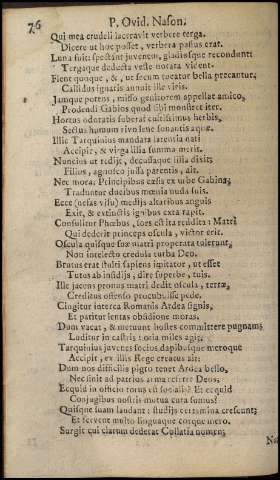 76
P. Ovid. Nason.
Qui mea crudeli laceravit verbere terga.
Dicere ut hoc posset, verbera passus erat.
Luna fuit: spectant juvenem, gladiosque recondunt:
Tergaque deducta veste notata vident.
Flent quoque, &, ut secum tueatur bella precantur,
Callidus ignaris annuit ille viris.
Jamque potens, misso genitorem appellat amico,
Prodendi Gabios quod sibi monstret iter.
Hortus odoratis suberat cultissimus herbis,
Sectus humum rivo lene sonantis aquæ.
Illic Tarquinius mandata latentia nati
Accipit, & virga lilia summa metit.
Nuncius ut rediit, decussaque lilia dixit;
Filius, agnosco jussa parentis, ait.
Nec mora: Principibus cæsis ex urbe Gabina;
Traduntur ducibus mœnia nuda suis.
Ecce (nefas visu) medijs altaribus anguis
Exit, & extinctis ignibus exta rapit.
Consulitur Phœbus, sors est ita reddita: Matri
Qui dederit princeps oscula, victor erit.
Oscula quisque suæ matri properata tulerunt,
Non intellecto credula turba Deo.
Brutus erat stulti sapiens imitator, ut esset
Tutus ab insidijs, dire superbe, tuis.
Ille jacens pronus matri dedit oscula, terræ,
Creditus offenso procubuisse pede.
Cingitur interea Romanis Ardea signis,
Et patitur lentas obsidione moras.
Dum vacat, & metuunt hostes committere pugnam;
Luditur in castris: otia miles agit.
Tarquinius juvenes socios dapibusque meroque
Accipit, ex illis Rege creatus ait:
Dum nos difficilis pigro tenet Ardea bello,
Nec sinit ad patrios arma referre Deos;
Ecquid in officio torus est socialis? Et ecquid
Conjugibus nostris mutua cura sumus?
Quisque suam laudant: studijs certamina crescunt;
Et fervent multo linguaque corque mero.
Surgit cui clarum dederat Collatia nomen;